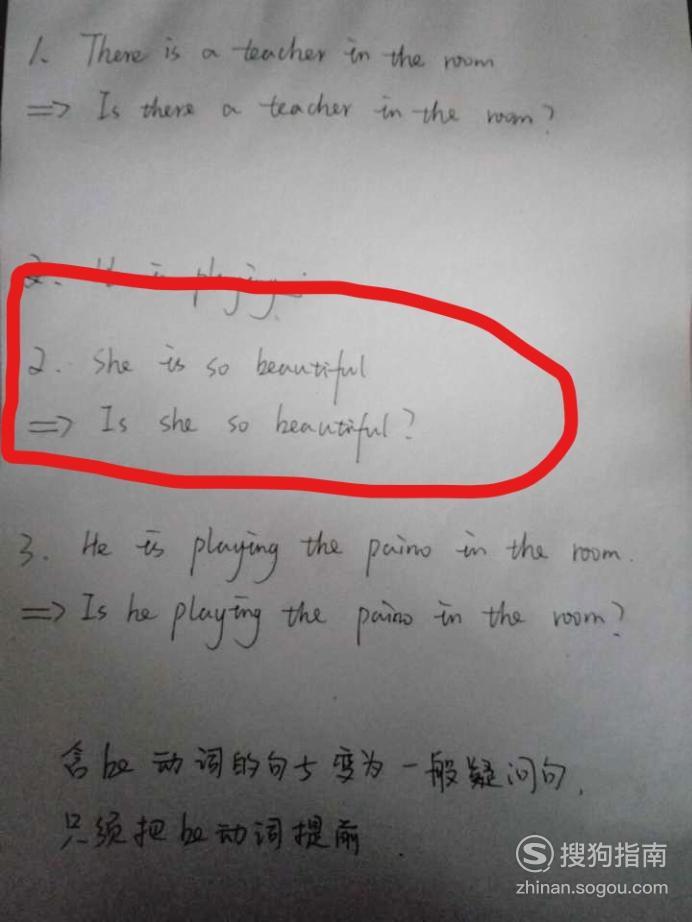 1. There is a teacher in the room
=> Is there a teacher in the room?
2. He is playing
2. She is so beautiful
=> Is she so beautiful?
3. He is playing the paino in the room.
=> Is he playing the paino in the room?
含be动词的句子变为一般疑问句,
只须把be动词提前
S 搜狗指南
zhinan.sogou.com